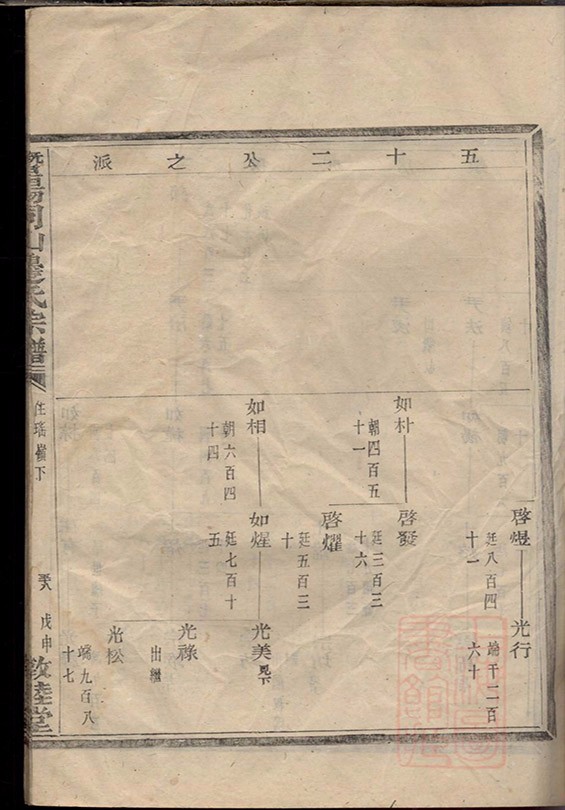 五十二公之派
啓煜
廷八百四
十一
光行
端千二百
六十
如朴
朝四百五
十一
啓發
廷三百三
十六
啓燿
廷五百三
十
如相
朝六百四
十四
如煋
廷七百十
五
光美見下
光祿
出繼
光松
端九百八
十七
暨陽同山邊氏宗譜
住瑤嶺下
戊申
敦睦堂